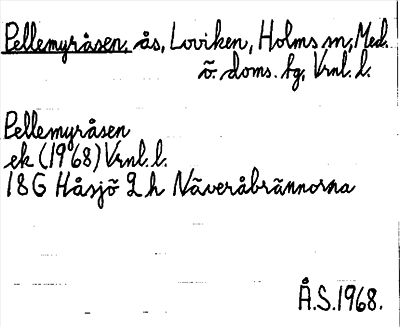 Pellemyråsen, ås, Loviken, Holms sn, Med.
ö. doms. hg, Vrnl. l.
Pellemyråsen
ek (1968) Vrnl. l.
18G Håsjö 2 h Näveråbrännorna
Å.S. 1968.